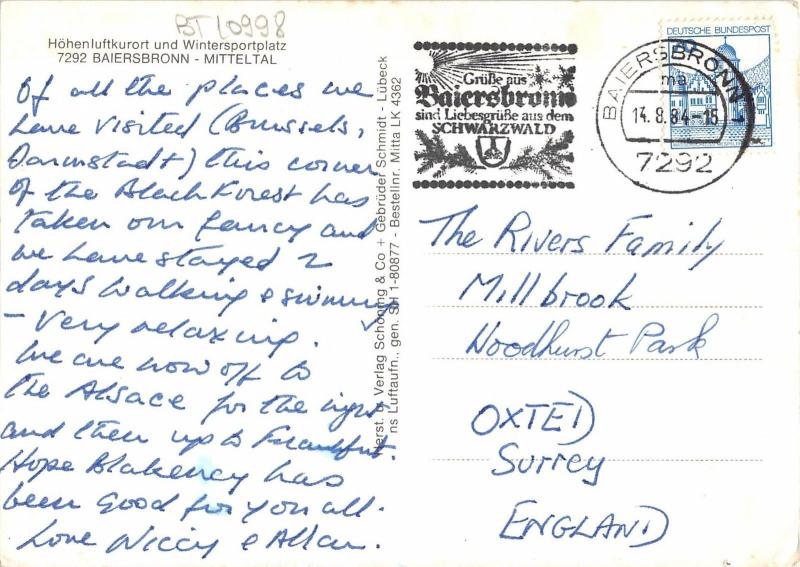 BT L0998
Höhenluftkurort und Wintersportplatz
7292 BAIERSBRONN - MITTELTAL
Of all the places we
have visited (Brussels,
Darmstadt) this corner
of the Black Forest has
taken our fancy and
we have stayed 2
days walking & swimming
- very relaxing.
We are now off to
the Alsace for the night
and then up to Frankfurt.
Hope Blakeney has
been good for you all.
Love Niccy & Allan.
Herst. u. Verlag Schöning & Co + Gebrüder Schmidt - Lübeck
ns Luftaufn., gen. SH 1-80877 - Bestellnr. Mitta LK 4362
Grüße aus
Baiersbronn
sind Liebesgrüße aus dem
SCHWARZWALD
DEUTSCHE BUNDESPOST
BAIERSBRONN
ma
14.8.84-15
7292
The Rivers Family
Millbrook
Woodhurst Park
OXTED
Surrey
ENGLAND